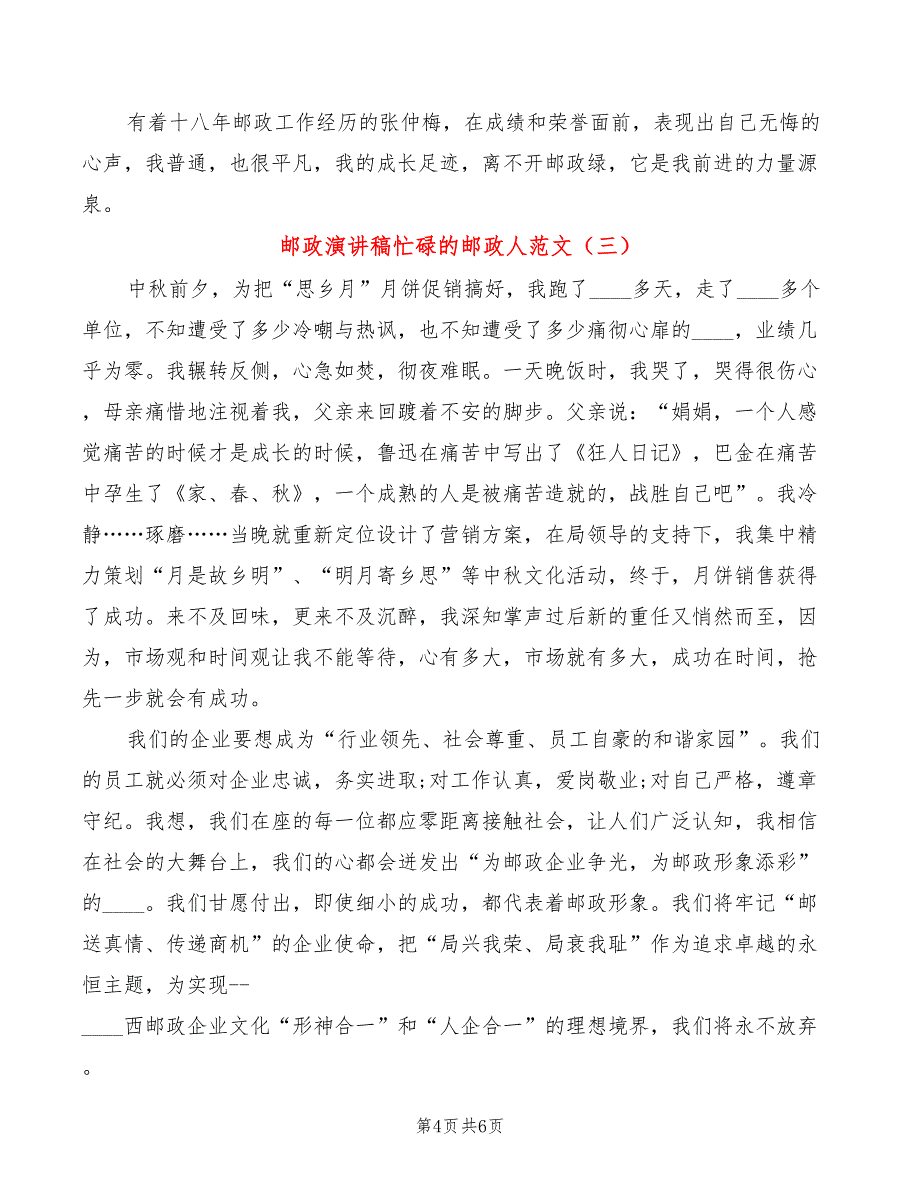 有着十八年邮政工作经历的张仲梅，在成绩和荣誉面前，表现出自己无悔的
心声，我普通，也很平凡，我的成长足迹，离不开邮政绿，它是我前进的力量源
泉。
邮政演讲稿忙碌的邮政人范文（三）
中秋前夕，为把“思乡月”月饼促销搞好，我跑了____多天，走了____多个
单位，不知遭受了多少冷嘲与热讽，也不知遭受了多少痛彻心扉的____，业绩几
乎为零。我辗转反侧，心急如焚，彻夜难眠。一天晚饭时，我哭了，哭得很伤心
，母亲痛惜地注视着我，父亲来回踱着不安的脚步。父亲说：“娟娟，一个人感
觉痛苦的时候才是成长的时候，鲁迅在痛苦中写出了《狂人日记》，巴金在痛苦
中孕生了《家、春、秋》，一个成熟的人是被痛苦造就的，战胜自己吧”。我冷
静……琢磨……当晚就重新定位设计了营销方案，在局领导的支持下，我集中精
力策划“月是故乡明”、“明月寄乡思”等中秋文化活动，终于，月饼销售获得
了成功。来不及回味，更来不及沉醉，我深知掌声过后新的重任又悄然而至，因
为，市场观和时间观让我不能等待，心有多大，市场就有多大，成功在时间，抢
先一步就会有成功。
我们的企业要想成为“行业领先、社会尊重、员工自豪的和谐家园”。我们
的员工就必须对企业忠诚，务实进取;对工作认真，爱岗敬业;对自己严格，遵章
守纪。我想，我们在座的每一位都应零距离接触社会，让人们广泛认知，我相信
在社会的大舞台上，我们的心都会迸发出“为邮政企业争光，为邮政形象添彩”
的____。我们甘愿付出，即使细小的成功，都代表着邮政形象。我们将牢记“邮
送真情、传递商机”的企业使命，把“局兴我荣、局衰我耻”作为追求卓越的永
恒主题，为实现--
____西邮政企业文化“形神合一”和“人企合一”的理想境界，我们将永不放弃
。
第4页 共6页